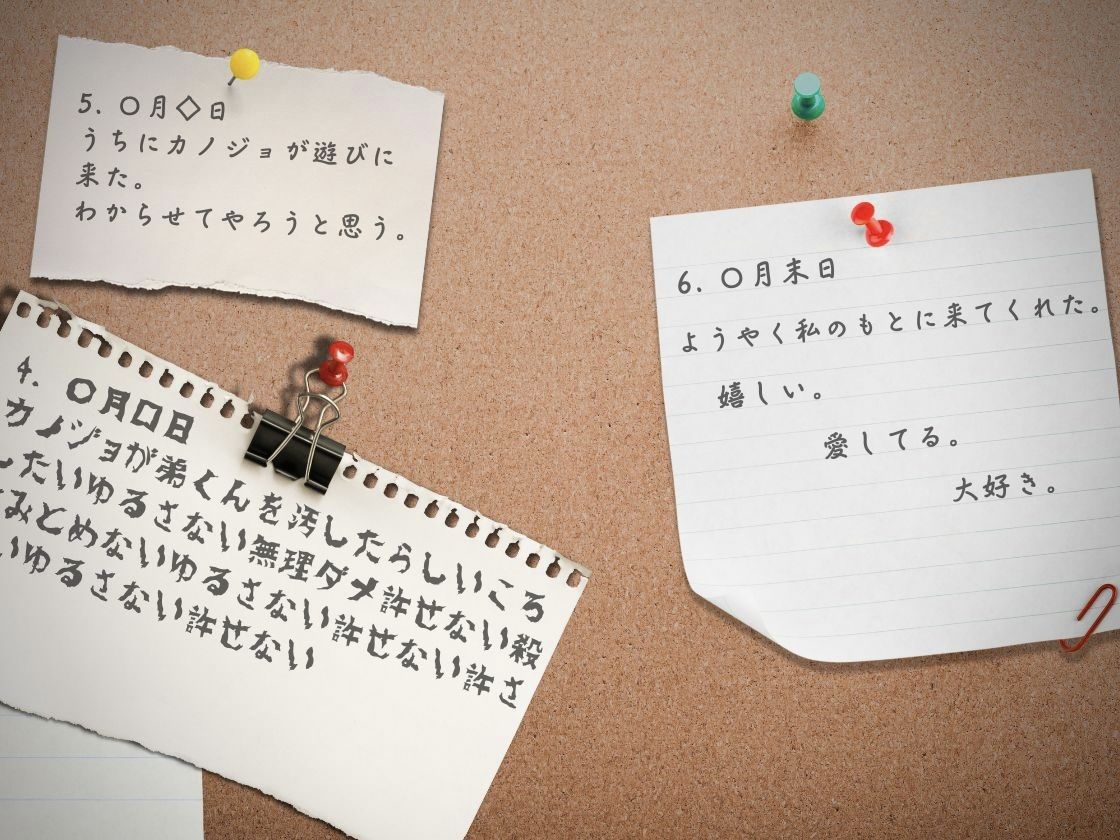 5. 〇月◇日
うちにカノジョが遊びに
来た。
わからせてやろうと思う。
4. 〇月口日
カノジョが弟くんを汚したらしいころ
したいゆるさない無理ダメ許せない殺
みとめないゆるさない許せない許さ
いゆるさない許せない
6. 〇月末日
ようやく私のもとに来てくれた。
嬉しい。
愛してる。
大好き。